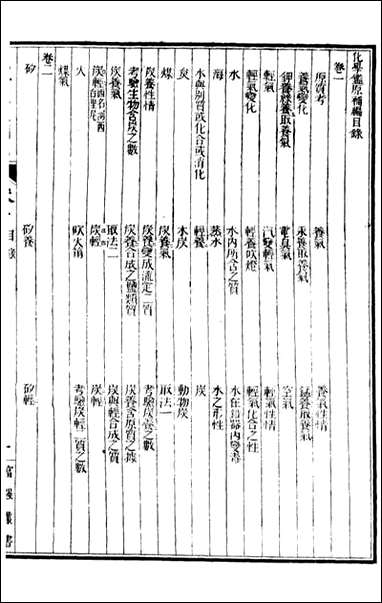 化學鑑原補編目錄
卷一
原質考 養氣 養氣性情
養氣變化 汞養取養氣 錳養取養氣
鉀養綠養取養氣 電臭氣 空氣
輕氣 汽變輕氣 輕氣性情
輕氣變化 輕養吹燈 輕氣化合之性
水 水內所含之質 水在鉛器內變毒
海水 蒸水 水之形性
水與別質或化合或消化 輕養 炭
炭 木炭 動物炭
煤 炭養氣 取法一
炭養性情 炭養變成流定二質 考驗炭養之數
考驗生物含炭之數 炭養合成之鹽類質 炭養含原質之據
炭養氣 取法二 炭與輕合成之質
炭輕 炭輕 炭輕
火 吹火筒 考驗炭輕二質之數
煤氣
卷二
矽 矽養 矽輕
目錄
一 富強叢書